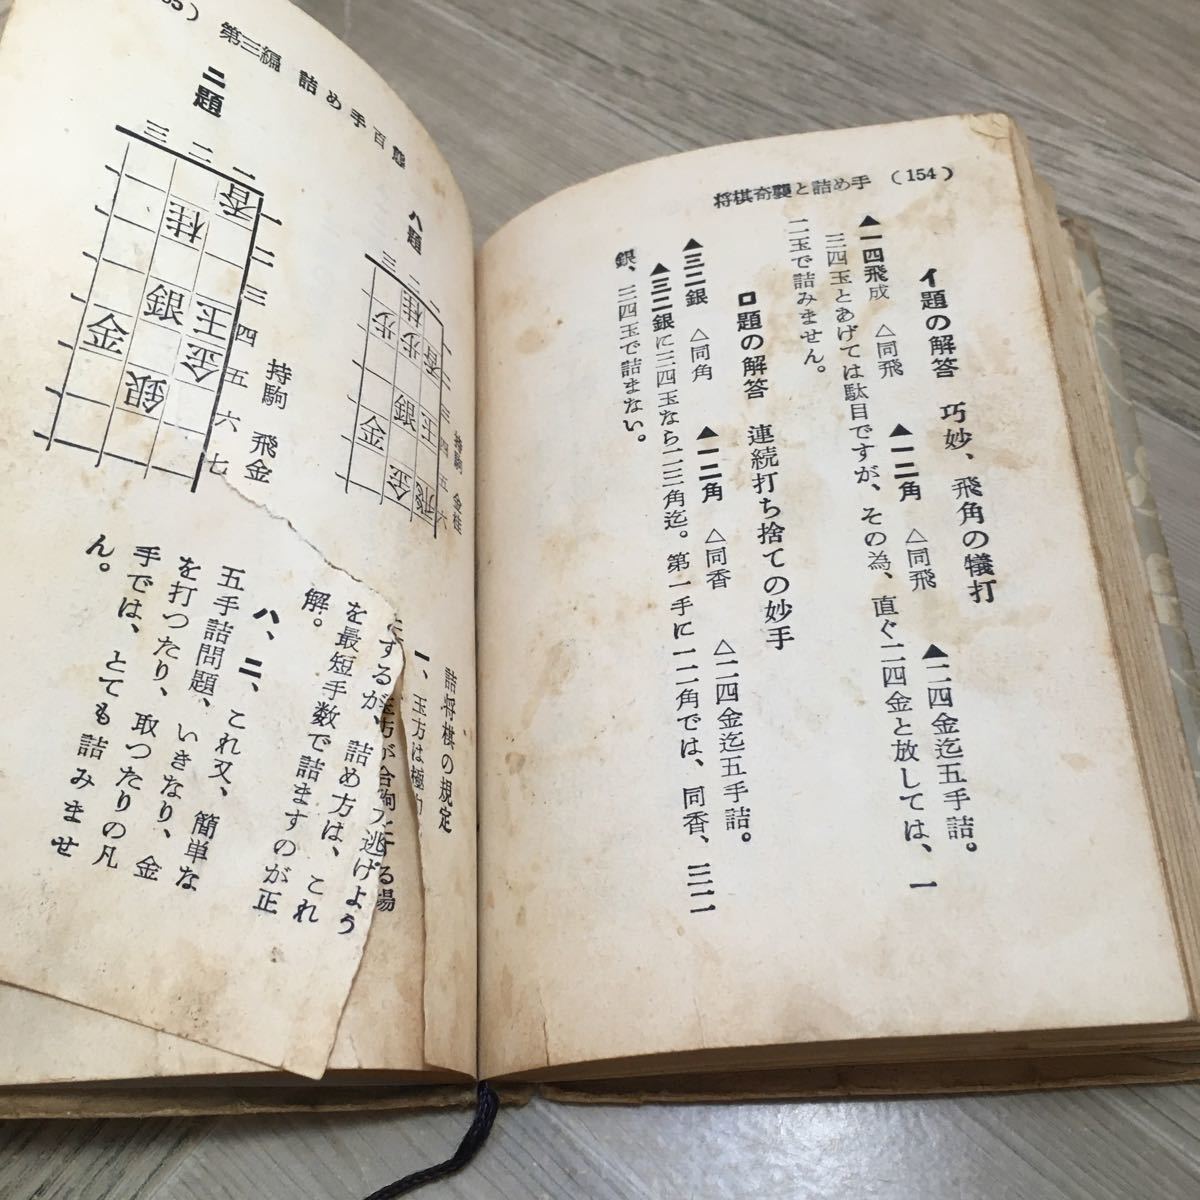 将棋奇襲と詰め手 (154)
イ題の解答 巧妙、飛角の犠打
▲一四飛成 △同飛 ▲一二角 △同飛 ▲二四金迄五手詰。
三四玉とあげては駄目ですが、その為、直ぐ二四金と放しては、一
二玉で詰みません。
ロ題の解答 連続打ち捨ての妙手
▲三二銀 △同角 ▲一二角 △同香 △二四金迄五手詰。
▲三二銀に三四玉なら一二三角迄。第一手に一二角では、同香、三二
銀、三四玉で詰まない。
第三編 詰め手百態
ハ題
三 二 一
一 二 三 四 五 六
持駒 金桂
桂 香
歩 歩
銀 玉
金
金 飛
ニ題
三 二 一
一 二 三 四 五 六 七
持駒 飛金
香
桂
銀 玉
金 金
銀
詰将棋の規定
一、玉方は極力
とするが、玉方が合駒
を最短手数で詰ますのが正
解。
ハ、ニ、これ又、簡単な
五手詰問題、いきなり、金
を打つたり、取つたりの凡
手では、とても詰みませ
ん。
逃げよう
る場
詰め方は、これ